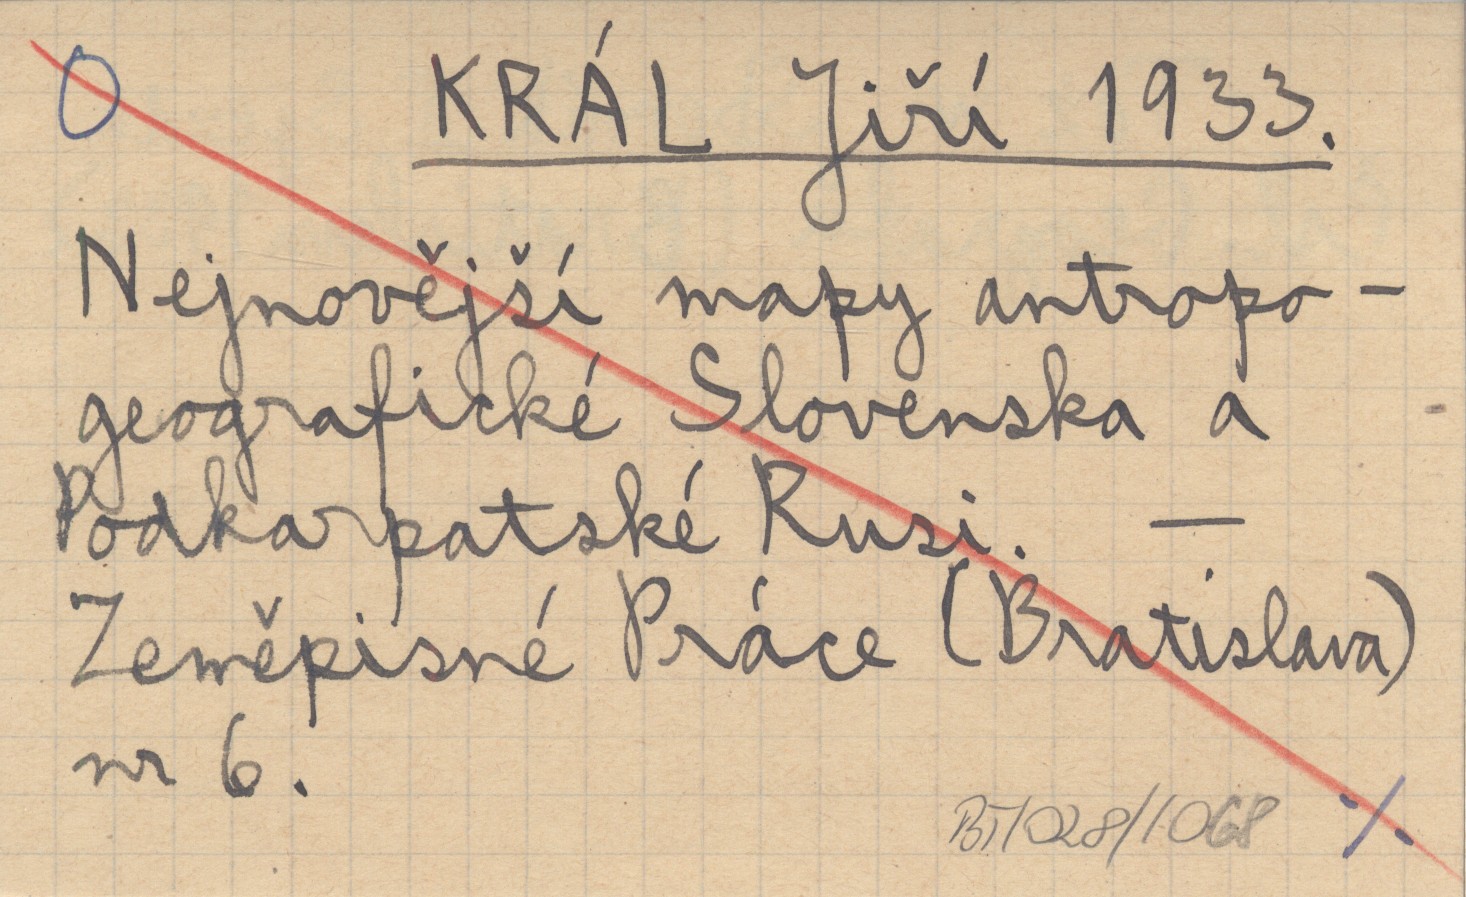 O
KRÁL Jiří 1933.
Nejnovější mapy antropo-
geografické Slovenska a
Podkarpatské Rusi. —
Zeměpisné Práce (Bratislava)
nr 6.